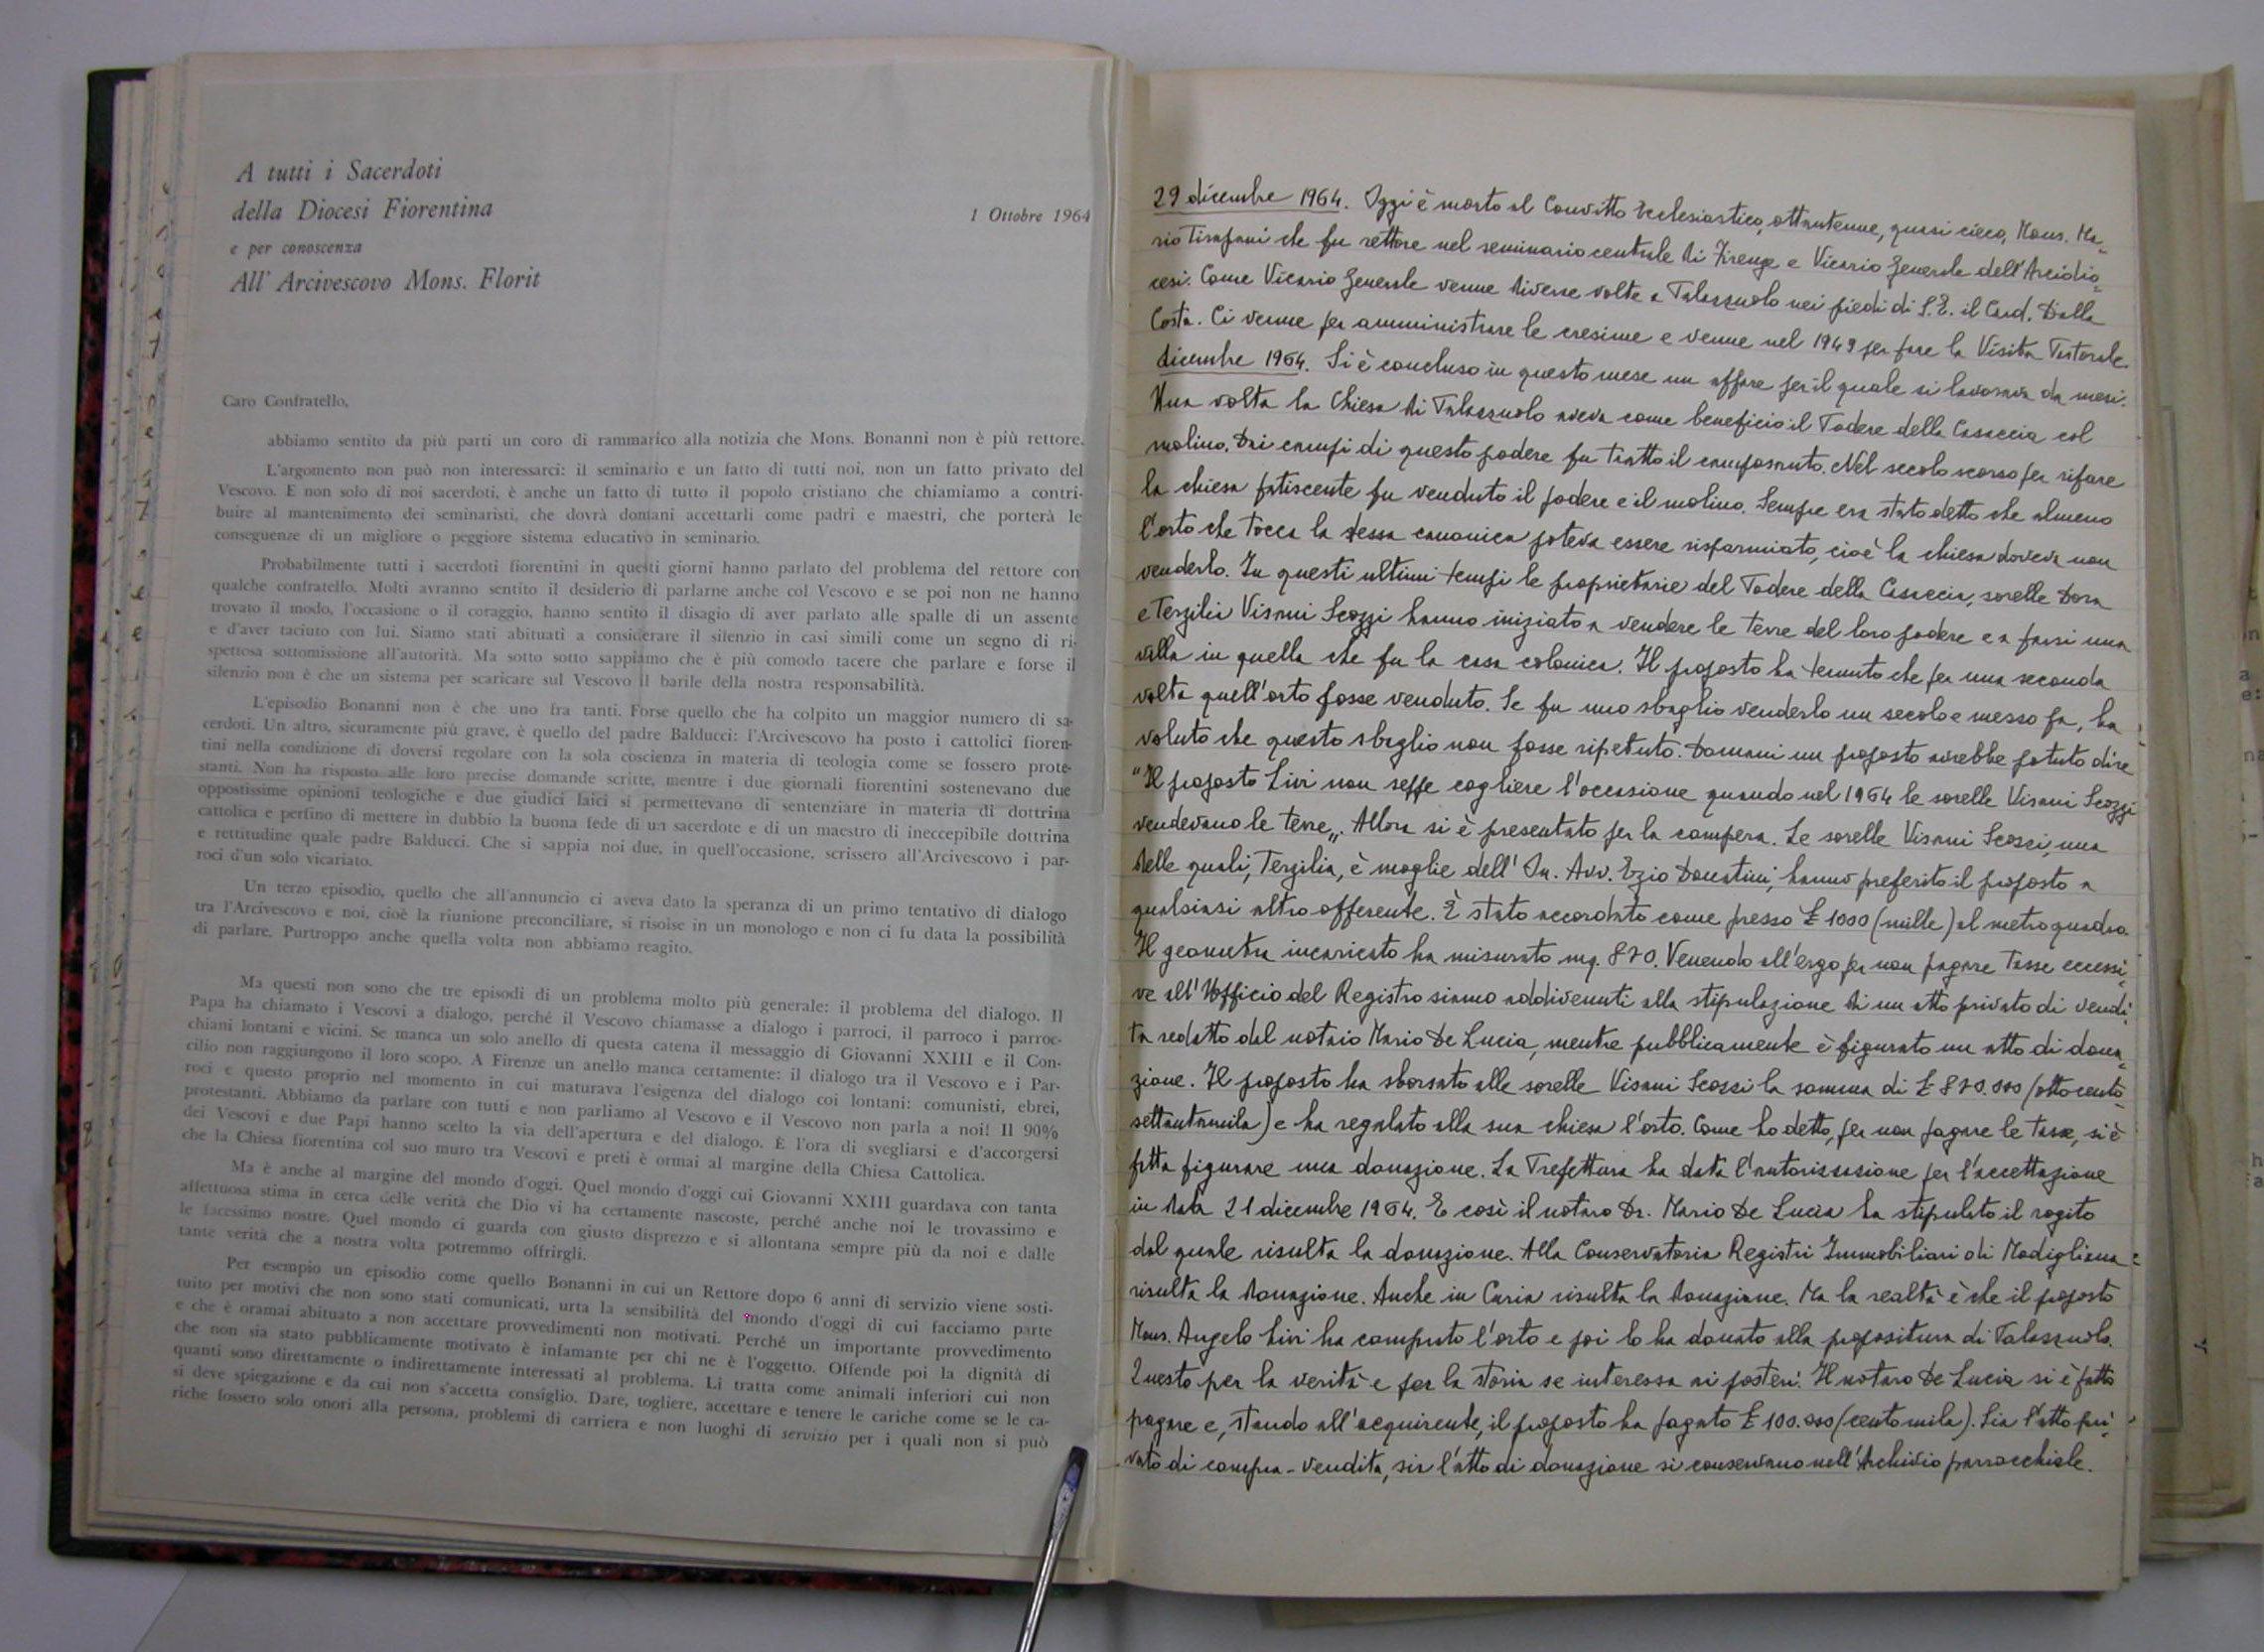 A tutti i Sacerdoti
della Diocesi Fiorentina
e per conoscenza
All' Arcivescovo Mons. Florit
1 Ottobre 1964
Caro Confratello,
abbiamo sentito da più parti un coro di rammarico alla notizia che Mons. Bonanni non è più rettore.
L'argomento non può non interessarci: il seminario e un fatto di tutti noi, non un fatto privato del
Vescovo. E non solo di noi sacerdoti, è anche un fatto di tutto il popolo cristiano che chiamiamo a contri-
buire al mantenimento dei seminaristi, che dovrà domani accettarli come padri e maestri, che porterà le
conseguenze di un migliore o peggiore sistema educativo in seminario.
Probabilmente tutti i sacerdoti fiorentini in questi giorni hanno parlato del problema del rettore con
qualche confratello. Molti avranno sentito il desiderio di parlarne anche col Vescovo e se poi non ne hanno
trovato il modo, l'occasione o il coraggio, hanno sentito il disagio di aver parlato alle spalle di un assente
e d'aver taciuto con lui. Siamo stati abituati a considerare il silenzio in casi simili come un segno di ri-
spettosa sottomissione all'autorità. Ma sotto sotto sappiamo che è più comodo tacere che parlare e forse il
silenzio non è che un sistema per scaricare sul Vescovo il barile della nostra responsabilità.
L'episodio Bonanni non è che uno fra tanti. Forse quello che ha colpito un maggior numero di sa-
cerdoti. Un altro, sicuramente più grave, è quello del padre Balducci: l'Arcivescovo ha posto i cattolici fioren-
tini nella condizione di doversi regolare con la sola coscienza in materia di teologia come se fossero prote-
stanti. Non ha risposto alle loro precise domande scritte, mentre i due giornali fiorentini sostenevano due
oppostissime opinioni teologiche e due giudici laici si permettevano di sentenziare in materia di dottrina
cattolica e perfino di mettere in dubbio la buona fede di un sacerdote e di un maestro di ineccepibile dottrina
e rettitudine quale padre Balducci. Che si sappia noi due, in quell'occasione, scrissero all'Arcivescovo i par-
roci d'un solo vicariato.
Un terzo episodio, quello che all'annuncio ci aveva dato la speranza di un primo tentativo di dialogo
tra l'Arcivescovo e noi, cioè la riunione preconciliare, si risolse in un monologo e non ci fu data la possibilità
di parlare. Purtroppo anche quella volta non abbiamo reagito.
Ma questi non sono che tre episodi di un problema molto più generale: il problema del dialogo. Il
Papa ha chiamato i Vescovi a dialogo, perché il Vescovo chiamasse a dialogo i parroci, il parroco i parroc-
chiani lontani e vicini. Se manca un solo anello di questa catena il messaggio di Giovanni XXIII e il Con-
cilio non raggiungono il loro scopo. A Firenze un anello manca certamente: il dialogo tra il Vescovo e i Par-
roci e questo proprio nel momento in cui maturava l'esigenza del dialogo coi lontani: comunisti, ebrei,
protestanti. Abbiamo da parlare con tutti e non parliamo al Vescovo e il Vescovo non parla a noi! Il 90%
dei Vescovi e due Papi hanno scelto la via dell'apertura e del dialogo. È l'ora di svegliarsi e d'accorgersi
che la Chiesa fiorentina col suo muro tra Vescovi e preti è ormai al margine della Chiesa Cattolica.
Ma è anche al margine del mondo d'oggi. Quel mondo d'oggi cui Giovanni XXIII guardava con tanta
affettuosa stima in cerca delle verità che Dio vi ha certamente nascoste, perché anche noi le trovassimo e
le facessimo nostre. Quel mondo ci guarda con giusto disprezzo e si allontana sempre più da noi e dalle
tante verità che a nostra volta potremmo offrirgli.
Per esempio un episodio come quello Bonanni in cui un Rettore dopo 6 anni di servizio viene sosti-
tuito per motivi che non sono stati comunicati, urta la sensibilità del mondo d'oggi di cui facciamo parte
e che è oramai abituato a non accettare provvedimenti non motivati. Perché un importante provvedimento
che non sia stato pubblicamente motivato è infamante per chi ne è l'oggetto. Offende poi la dignità di
quanti sono direttamente o indirettamente interessati al problema. Li tratta come animali inferiori cui non
si deve spiegazione e da cui non s'accetta consiglio. Dare, togliere, accettare e tenere le cariche come se le ca-
riche fossero solo onori alla persona, problemi di carriera e non luoghi di servizio per i quali non si può
29 dicembre 1964. Oggi è morto al Convitto Ecclesiastico, ottantenne, quasi cieco, Mons. Ma=
rio Tirapani che fu rettore nel seminario centrale di Firenze e Vicario Generale dell'Arcidio=
cesi. Come Vicario Generale venne diverse volte a Palazzuolo nei piedi di S.E. il Card. Dalla
Costa. Ci venne per amministrare le cresime e venne nel 1949 per fare la Visita Pastorale.
dicembre 1964. Si è concluso in questo mese un affare per il quale si lavorava da mesi.
Una volta la Chiesa di Palazzuolo aveva come beneficio il Podere della Casaccia col
molino. Dai campi di questo podere fu tratto il camposanto. Nel secolo scorso per rifare
la chiesa fatiscente fu venduto il podere e il molino. Sempre era stato detto che almeno
l'orto che tocca la stessa canonica poteva essere risparmiato, cioè la chiesa doveva non
venderlo. In questi ultimi tempi le proprietarie del Podere della Casaccia, sorelle Dora
e Terzilia Visani Scozzi hanno iniziato a vendere le terre del loro podere e a farsi una
villa in quella che fu la casa colonica. Il proposto ha temuto che per una seconda
volta quell'orto fosse venduto. Se fu uno sbaglio venderlo un secolo e mezzo fa, ha
voluto che questo sbaglio non fosse ripetuto. Domani un proposto avrebbe potuto dire
"Il proposto Livi non seppe cogliere l'occasione quando nel 1964 le sorelle Visani Scozzi
vendevano le terre„. Allora si è presentato per la compera. Le sorelle Visani Scozzi, una
delle quali, Terzilia, è moglie dell'On. Avv. Ezio Donatini, hanno preferito il proposto a
qualsiasi altro offerente. È stato accordato come prezzo £ 1000 (mille) al metro quadro.
Il geometra incaricato ha misurato mq. 870. Venendo all'ergo per non pagare tasse eccessi=
ve all'Ufficio del Registro siamo addivenuti alla stipulazione di un atto privato di vendi=
ta redatto dal notaio Mario De Lucia, mentre pubblicamente è figurato un atto di dona=
zione. Il proposto ha sborsato alle sorelle Visani Scozzi la somma di £ 870.000 (ottocento=
settantamila) e ha regalato alla sua chiesa l'orto. Come ho detto, per non pagare le tasse, si è
fatta figurare una donazione. La Prefettura ha data l'autorizzazione per l'accettazione
in data 21 dicembre 1964. E così il notaro Dr. Mario De Lucia ha stipulato il rogito
dal quale risulta la donazione. Alla Conservatoria Registri Immobiliari di Modigliana
risulta la donazione. Anche in Curia risulta la donazione. Ma la realtà è che il proposto
Mons. Angelo Livi ha comprato l'orto e poi lo ha donato alla propositura di Palazzuolo.
Questo per la verità e per la storia se interessa ai posteri. Il notaro De Lucia si è fatto
pagare e, stando all'acquirente, il proposto ha pagato £ 100.000 (centomila). Sia l'atto pri=
vato di compra-vendita, sia l'atto di donazione si conservano nell'Archivio parrocchiale.